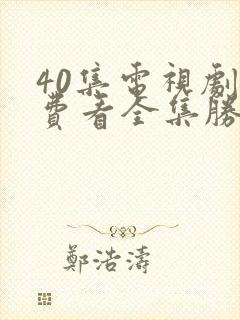 40集電視劇
費看全集勝
鄭浩濤